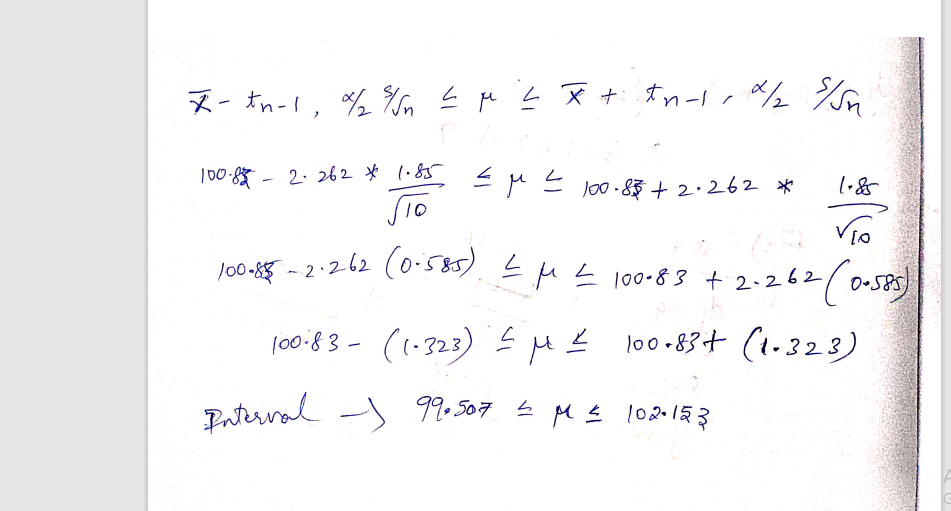 x̄ - tn-1, α/2 S/√n ≤ μ ≤ x̄ + tn-1, α/2 S/√n
100.83 - 2.262 * 1.85/√10 ≤ μ ≤ 100.83 + 2.262 * 1.85/√10
100.83 - 2.262 (0.585) ≤ μ ≤ 100.83 + 2.262 (0.585)
100.83 - (1.323) ≤ μ ≤ 100.83 + (1.323)
Interval → 99.507 ≤ μ ≤ 102.153